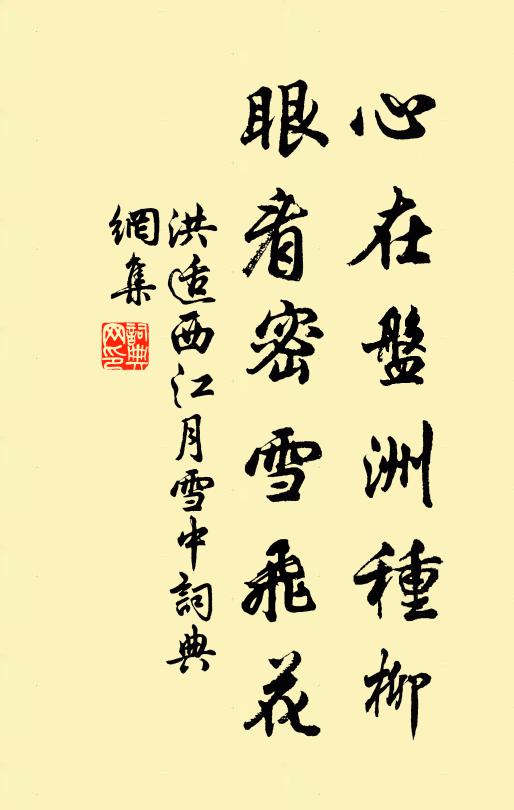 心在盤洲種柳
眼看密雪飛花
洪适西江月雪中詞典
網集
詞典網印